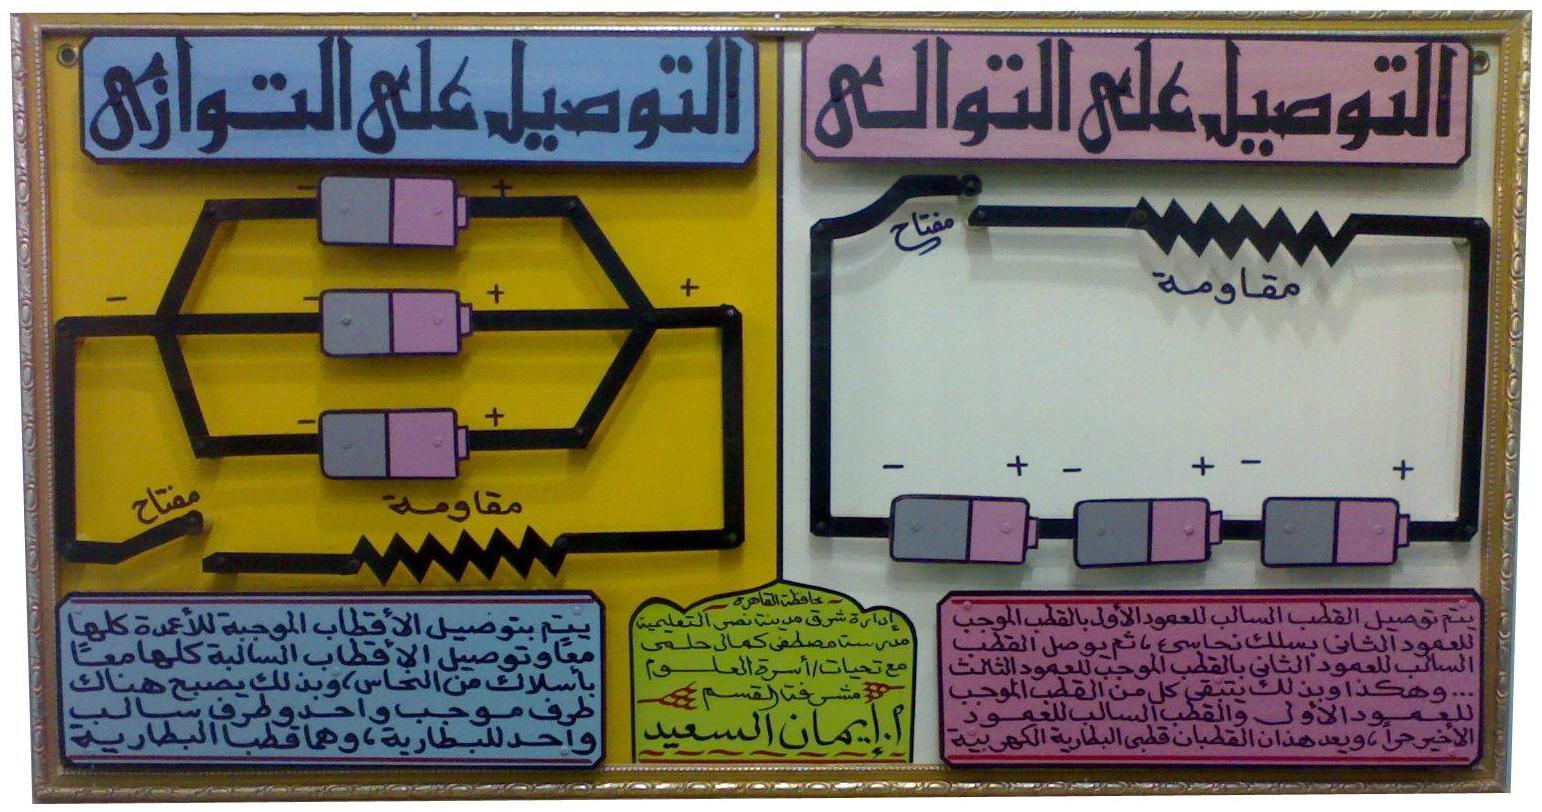 التوصيل على التوالى
مفتاح
مقاومة
- + - + - +
يتم توصيل القطب السالب للعمود الأول بالقطب الموجب
للعمود الثانى بسلك نحاسى ، ثم يوصل القطب
السالب للعمود الثانى بالقطب الموجب للعمود الثالث
... وهكذا وبذلك يتبقى كل من القطب الموجب
للعمود الأول والقطب السالب للعمود
الأخير حراً ، ويعد هذان القطبان قطبى البطارية الكهربية
التوصيل على التوازى
- +
- +
- +
- +
مفتاح
مقاومة
يتم بتوصيل الأقطاب الموجبة للأعمدة كلها
معًا وتوصيل الأقطاب السالبة كلها معًا
بأسلاك من النحاس ، وبذلك يصبح هناك
طرف موجب واحد وطرف سالب
واحد للبطارية ، وهما قطبا البطارية
محافظة القاهرة
إدارة شرق مدينة نصر التعليمية
مدرسة مصطفى كمال حلمى
مع تحيات / أسرة العلوم
مشرفة القسم
أ. إيمان السعيد